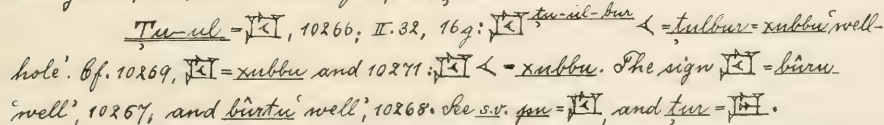 Ṭu-ul = 𒇥, 10266; II. 32, 16g: 𒇥 ṭu-úl-bur 𒌋 = ṭulbur = xubbu 'well-
hole'. Cf. 10269, 𒇥 = xubbu and 10271: 𒇥 𒌋 = xubbu. The sign 𒇥 = bûru
'well', 10267, and bûrtu 'well', 10268. See s.v. pu = 𒇥, and ṭur =